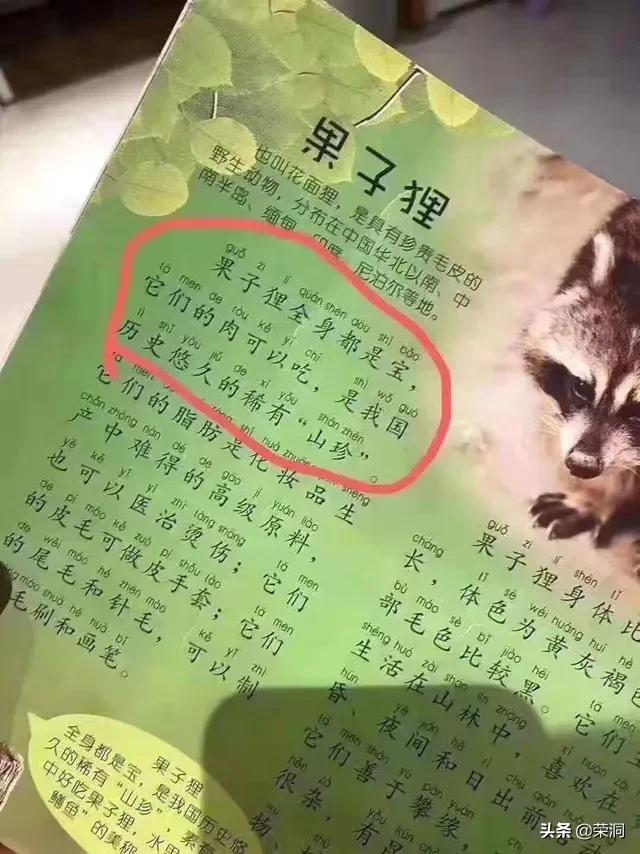 果子狸
也叫花面狸，是具有珍贵毛皮的
野生动物，分布在中国华北以南、中
南半岛、缅甸、印度、尼泊尔等地。
guǒ zi lí quán shēn dōu shì bǎo
果子狸全身都是宝，
tā men de ròu kě yǐ chī shì wǒ guó
它们的肉可以吃，是我国
lì shǐ yōu jiǔ de xī yǒu shān zhēn
历史悠久的稀有“山珍”。
它们的脂肪是化妆品生
chǎn zhōng nán dé de gāo jí yuán liào
产中难得的高级原料，
yě kě yǐ yī zhì tàng shāng tā men
也可以医治烫伤；它们
de pí máo kě zuò pí shǒu tào tā men
的皮毛可做皮手套；它们
de wěi máo hé zhēn máo kě yǐ zhì
的尾毛和针毛，可以制
máo shuā hé huà bǐ
毛刷和画笔。
果子狸
全身都是宝，是我国历史悠
久的稀有“山珍”，素有
中好吃果子狸，水里
鳗鱼”的美称
guǒ zi lí shēn tǐ
果子狸身体比
cháng tǐ sè wéi huáng huī hè
长，体色为黄灰褐色
bù máo sè bǐ jiào hēi
部毛色比较黑。它们
shēng huó zài shān lín zhōng
生活在山林中，喜欢在
hūn
昏、夜间和日出前
它们善于攀缘，
很杂，有
物、
头条 @荣洞